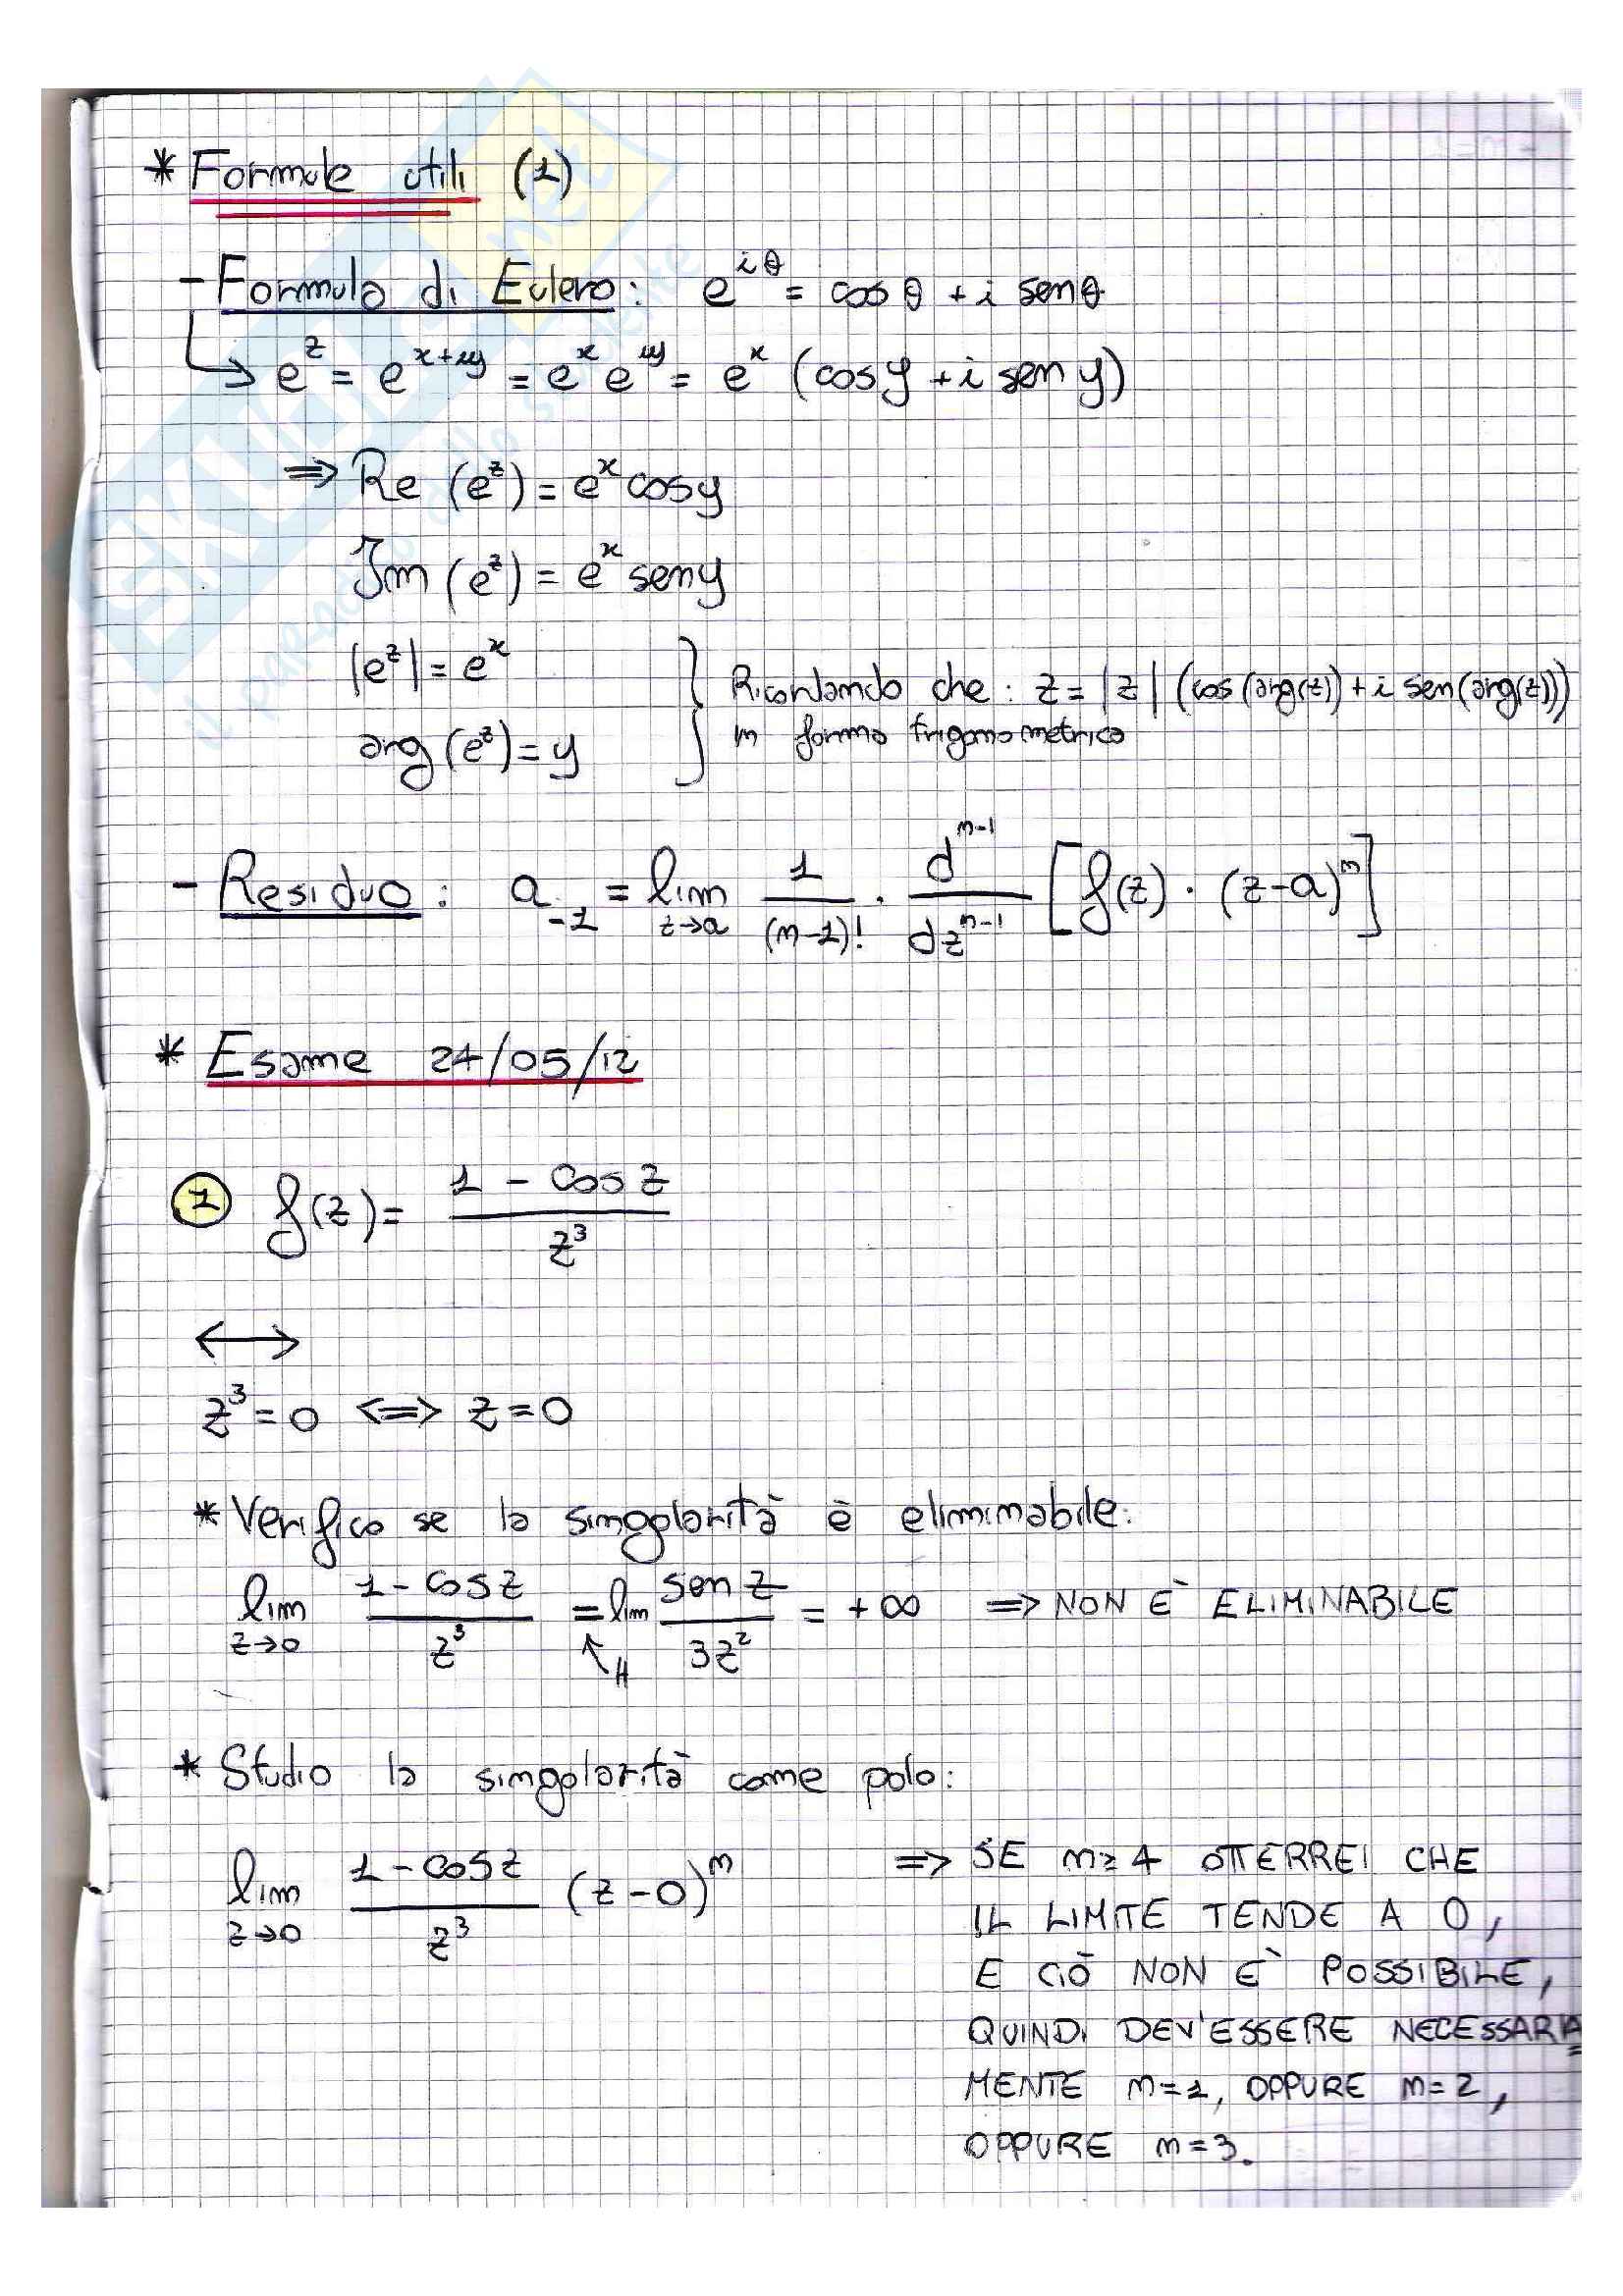 * Formule utili (1)
- Formula di Eulero: e^{iθ} = cos θ + i sen θ
↳ e^z = e^{x+iy} = e^x e^{iy} = e^x (cos y + i sen y)
⇒ Re (e^z) = e^x cos y
Im (e^z) = e^x sen y
|e^z| = e^x
arg (e^z) = y
} Ricordando che: z = |z| (cos (arg(z)) + i sen (arg(z)))
in forma trigonometrica
- Residuo: a_{-1} = lim_{z→a} 1/(n-1)! · d^{n-1}/dz^{n-1} [f(z) · (z-a)^n]
* Esame 24/05/12
1 f(z) = (1 - cos z)/z^3
⟷
z^3 = 0 ⟺ z = 0
* Verifico se la singolarità è eliminabile:
lim_{z→0} (1 - cos z)/z^3 = lim sen z/3z^2 = +∞ ⇒ NON È ELIMINABILE
↖H
* Studio la singolarità come polo:
lim_{z→0} (1 - cos z)/z^3 (z - 0)^n ⇒ SE n ≥ 4 OTTERREI CHE
IL LIMITE TENDE A 0,
E CIÒ NON È POSSIBILE,
QUINDI DEV'ESSERE NECESSARIA
MENTE n=1, OPPURE n=2,
OPPURE n=3.
SKUOLA.net
il paradiso dello studente